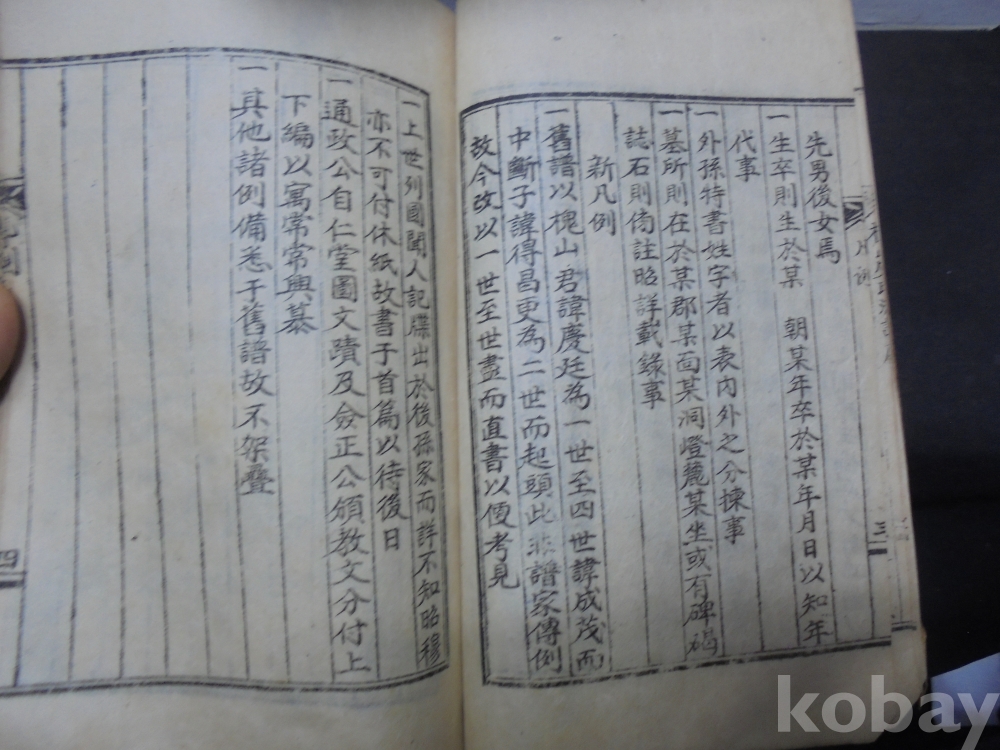 先男後女焉
一生卒則生於某 朝某年卒於某年月日以知年
代事
一外孫特書姓字者以表內外之分揀事
一墓所則在於某郡某面某洞嶝麓某坐或有碑碣
誌石則傍註昭詳載錄事
新凡例
一舊譜以槐山君諱慶廷為一世至四世諱成茂而
中斷子諱得昌更為二世而起頭此非譜家傳例
故今改以一世至世盡而直書以便考見
三
一上世列國聞人記牒出於後孫家而詳不知昭穆
亦不可付休紙故書于首篇以待後日
一通政公自仁堂圖文蹟及僉正公頒教文分付上
下編以寓常常興慕
一其他諸例備悉于舊譜故不架疊
四
kobay